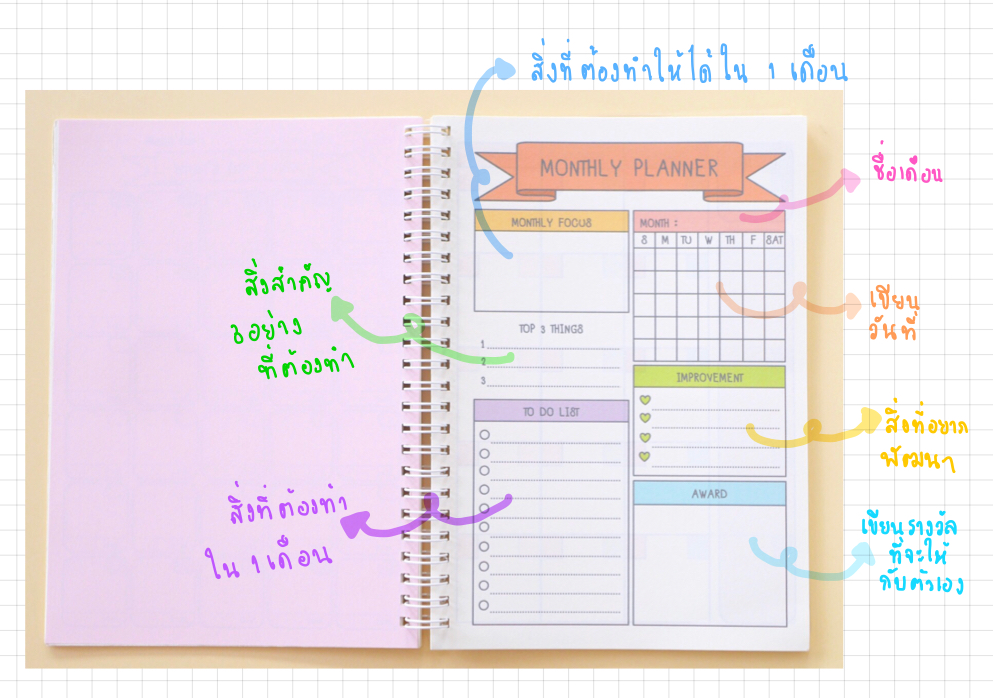 สิ่งที่ต้องทำให้ได้ใน 1 เดือน
MONTHLY PLANNER
ชื่อเดือน
MONTHLY FOCUS
MONTH :
S M TU W TH F SAT
สิ่งสำคัญ
3 อย่าง
ที่ต้องทำ
เขียน
วันที่
TOP 3 THINGS
1
2
3
IMPROVEMENT
TO DO LIST
สิ่งที่อยาก
พัฒนา
AWARD
สิ่งที่ต้องทำ
ใน 1 เดือน
เขียนรางวัล
ที่จะให้
กับตัวเอง